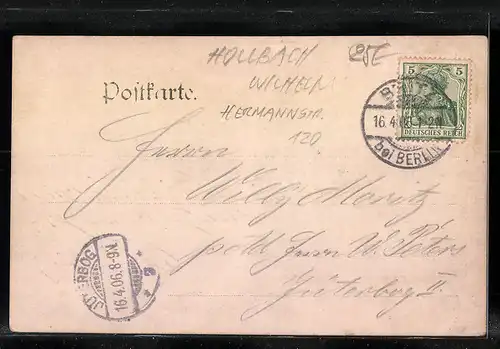 HOLLBACH 25€
WILHELM
Postkarte.
HERMANNSTR.
120
5 5
DEUTSCHES REICH
16.4.06
bei BERLIN
Herrn
Willy Moritz
Herrn W. Peters
Jüterbog II.
JÜTERBOG
16.4.06.8-9N.